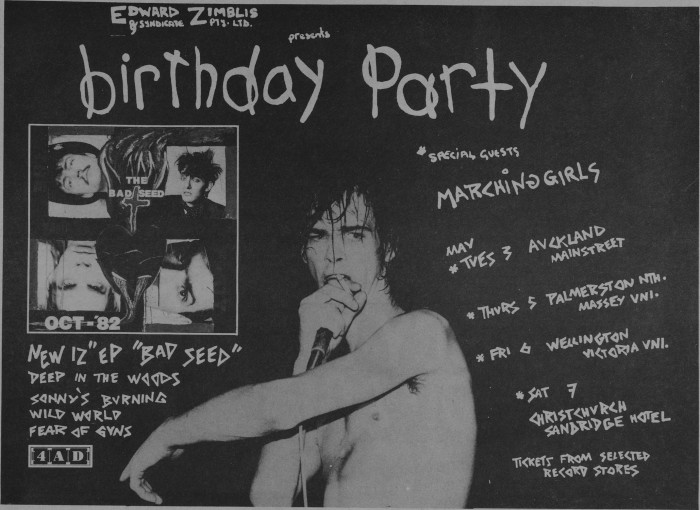 EDWARD ZIMBLIS
& SYNDICATE PTY. LTD.
presents
birthday Party
THE
BAD SEED
OCT-'82
NEW 12" EP "BAD SEED"
DEEP IN THE WOODS
SONNY'S BURNING
WILD WORLD
FEAR OF GUNS
4AD
* SPECIAL GUESTS
MARCHING GIRLS
MAY
* TUES 3 AUCKLAND
MAINSTREET
* THURS 5 PALMERSTON NTH.
MASSEY UNI.
* FRI 6 WELLINGTON
VICTORIA UNI.
* SAT 7
CHRISTCHURCH
SANDRIDGE HOTEL
TICKETS FROM SELECTED
RECORD STORES